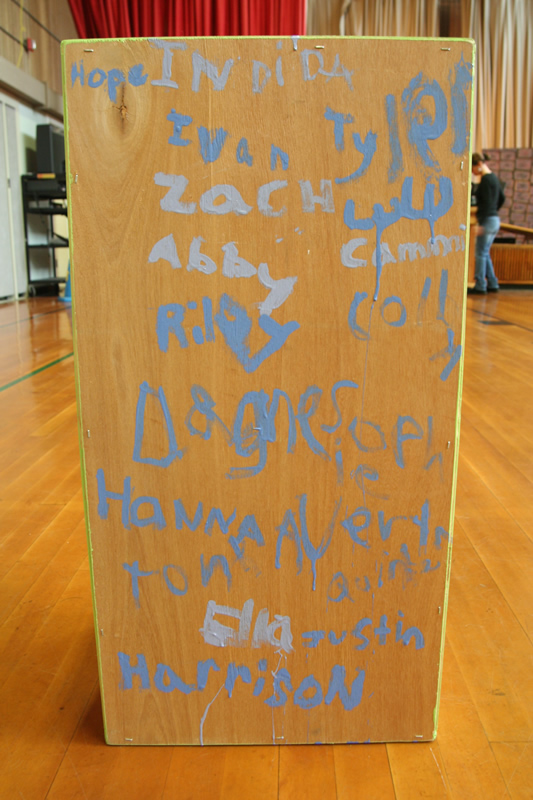 Hope INDiDA
Ivan Tyler
ZacH
Abby Cammi
Riley Colly
Dagne Sophie
HaNNAh AVeryn
ronn
Ella Justin
HarrisoN